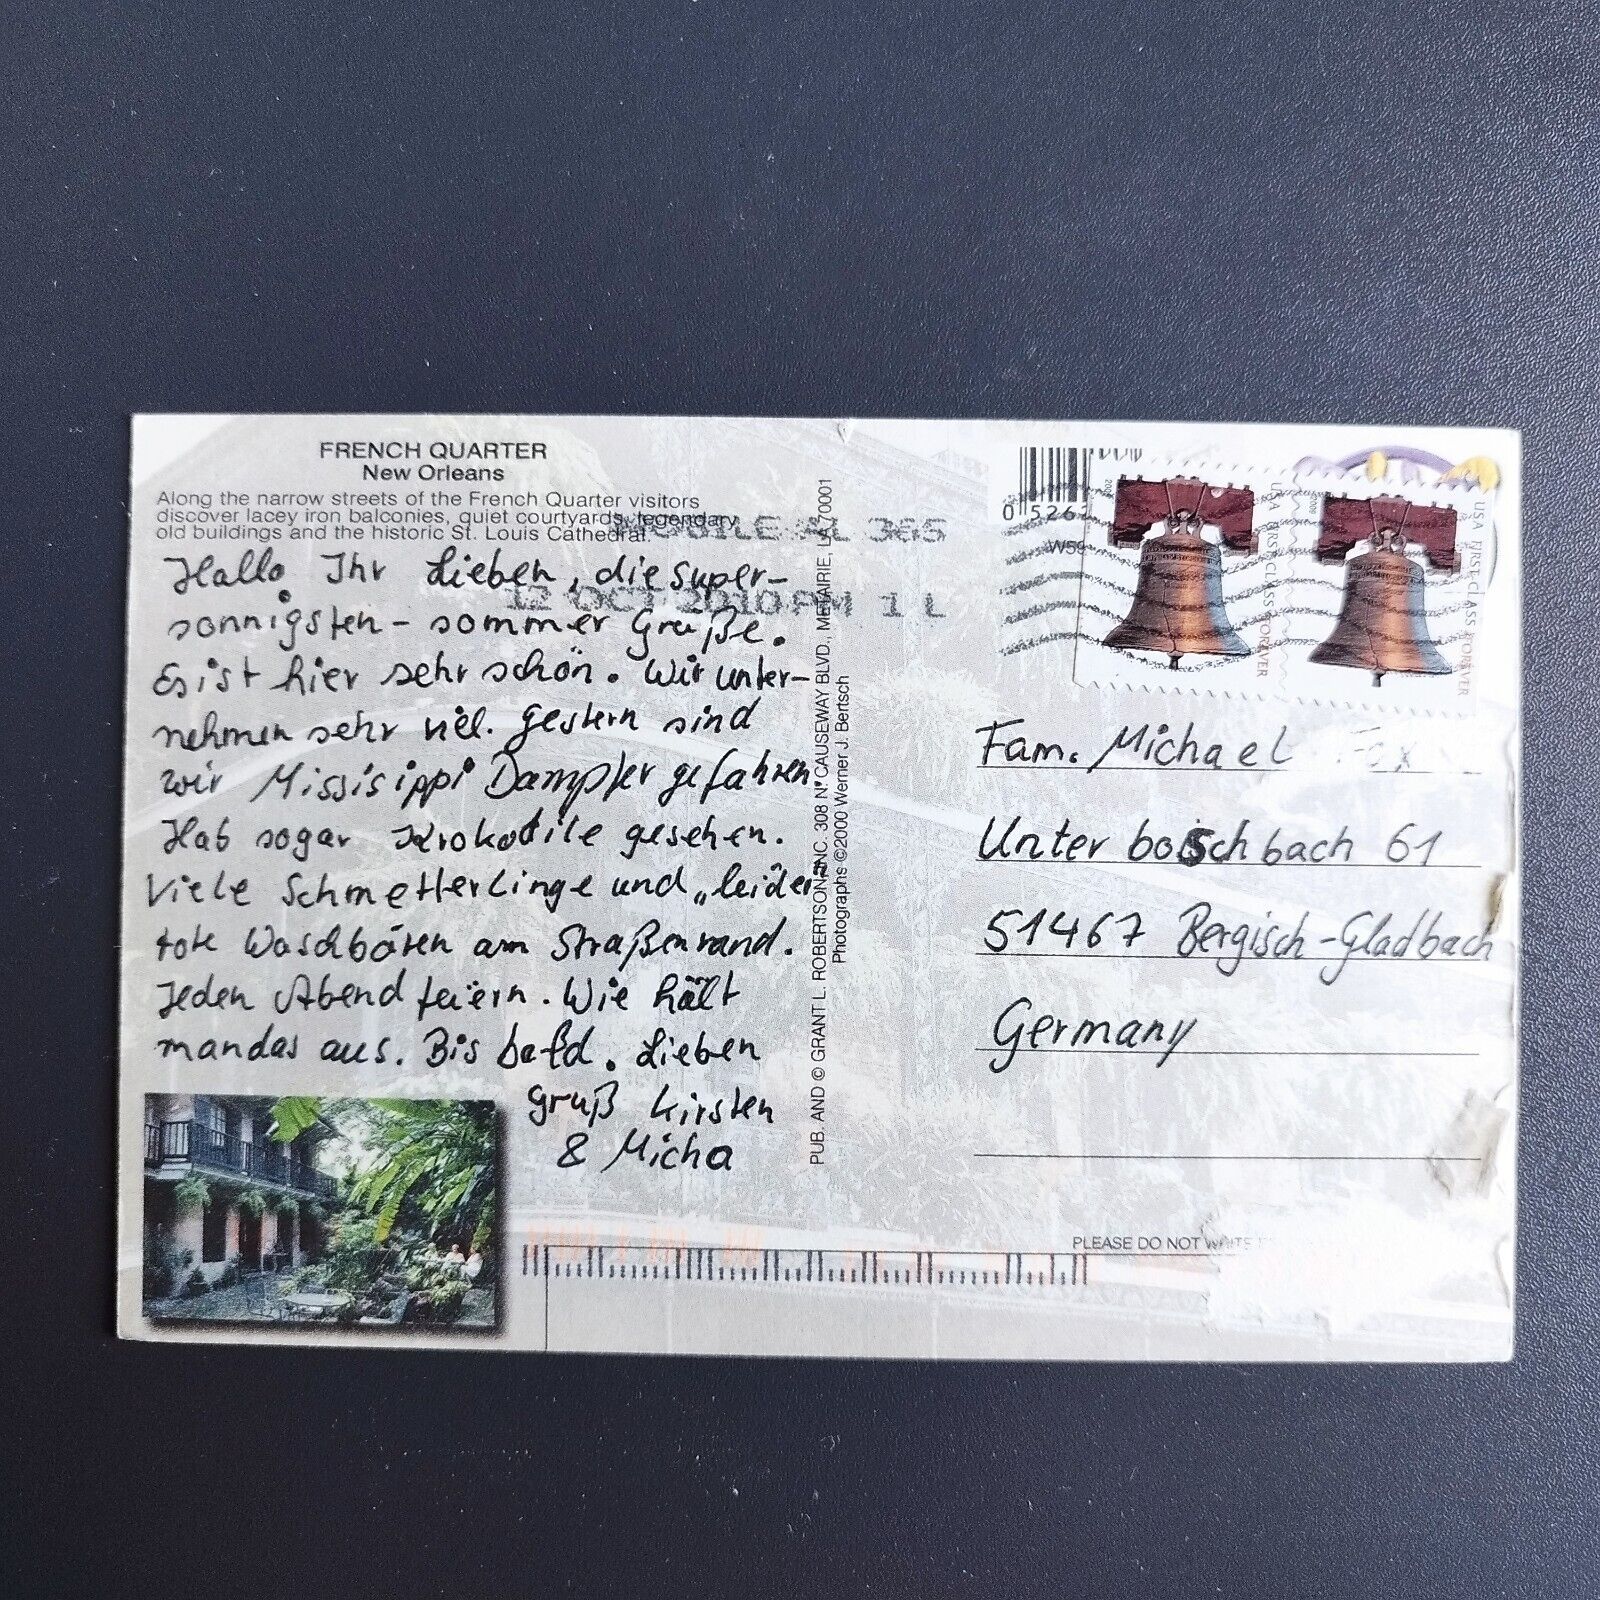 FRENCH QUARTER
New Orleans
Along the narrow streets of the French Quarter visitors
discover lacey iron balconies, quiet courtyards, legendary
old buildings and the historic St. Louis Cathedral.
MOBILE AL 365
12 OCT 2010 PM 1 L
Hallo Ihr Lieben, die super-
sonnigsten - sommer Grüße.
Es ist hier sehr schön. Wir unter-
nehmen sehr viel. Gestern sind
wir Mississippi Dampfer gefahren
Hab sogar Krokodile gesehen.
Viele Schmetterlinge und „leider"
tote Waschbären am Straßenrand.
Jeden Abend feiern. Wie hält
man das aus. Bis bald. Lieben
Gruß Kirsten
& Micha
PUB. AND © GRANT L. ROBERTSON INC. 308 N. CAUSEWAY BLVD., METAIRIE, LA 70001
Photographs ©2000 Werner J. Bertsch
0 5262
W59
USA FIRST-CLASS FOREVER
2009
USA FIRST-CLASS FOREVER
Fam. Michael Fox
Unterboschbach 61
51467 Bergisch-Gladbach
Germany
PLEASE DO NOT WRITE